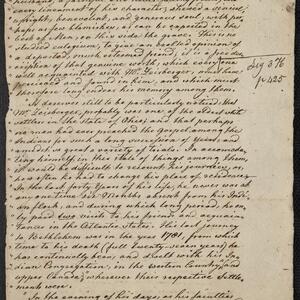 every element of his character, shewed a sincere,
upright, benevolent, and generous soul, with per-
haps as few blemishes, as can be expected in the
best of Men on this side the grave. This is no
studied eulogium, to give an exalted opinion of
a departed, much esteemed friend; it is a true
description of that genuine worth, which every one
well acquainted with Mr. Zeisberger, must have
perceived and found in him, and which must
therefore long endear his memory among them.
Seq 376
p 425
It deserves still to be particularly noticed, that
Mr. Zeisberger, probably was one of the oldest white
settlers in the State of Ohio; and that perhaps
no man had ever preached the Gospel among the
Indians for such a long succession of years, and
amidst so great a variety of trials. In accomoda-
ting himself in this state of things among them,
it would be difficult to recount his journeys,
as often he had to change his places of residence.
In the last forty Years of his life, he never was at
any one time six Months absent from his Indi-
an flock, and during which long period, he on-
ly paid two visits to his friends and acquain-
tances in the Atlantic states. His last journey
to Bethlehem was in the year 1781, from which
time to his death (full twenty seven years) he
has continually been, and dwelt with his In-
dian Congregation, in the western Country, and
upper Canada, wherever their respective Settle-
ments were.
In the evening of his days, as his faculties